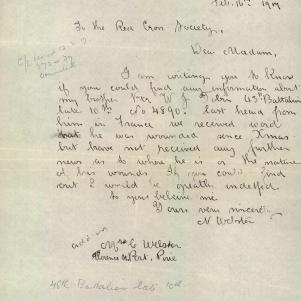 Feb. 16th 1917
To the Red Cross Society,
Dear Madam,
I am writing you to know
if you could find any information about
my brother W. J. 45th Battalion
late 10th No 4890. last heard from
him in France, we received word
that he was wounded since Xmas
but have not received any further
news as to where he is or the nature
of his wounds. If you could find
out I would be greatly indebted
to you believe me
Yours very sincerely
N Webster
address
Mrs C Webster
Pirie
48th Battalion late 10th